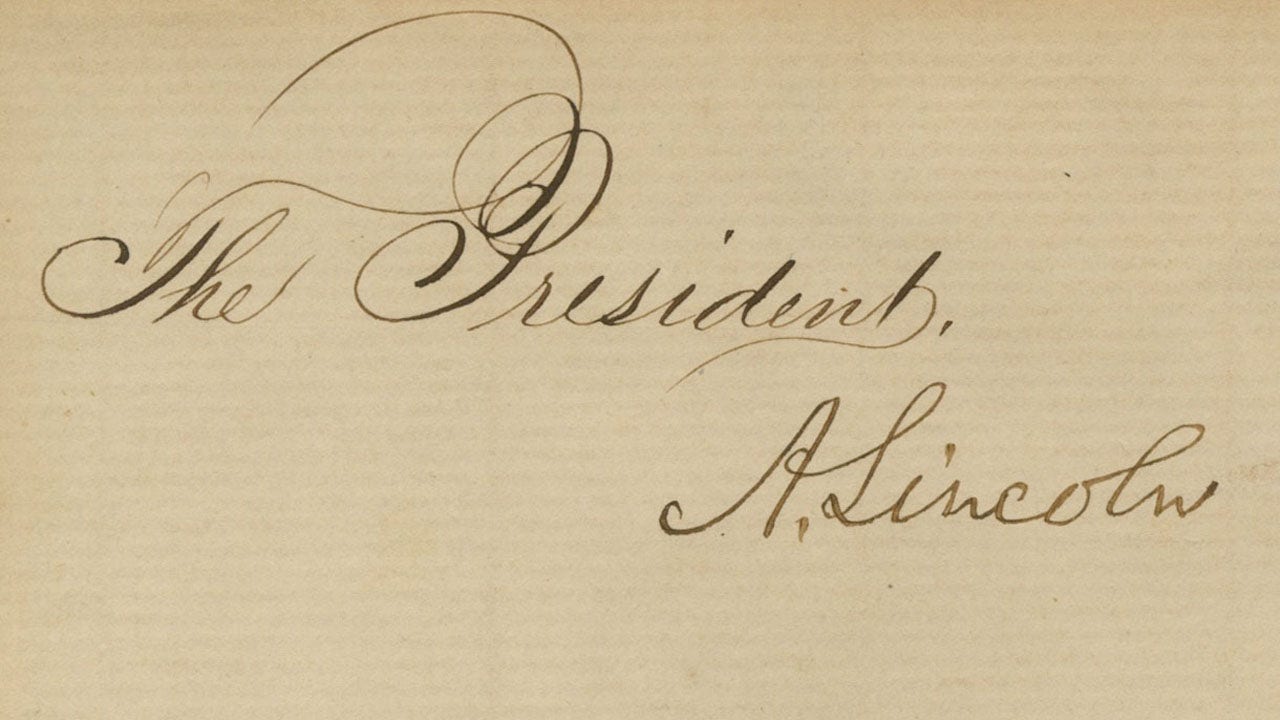 The President.
A. Lincoln